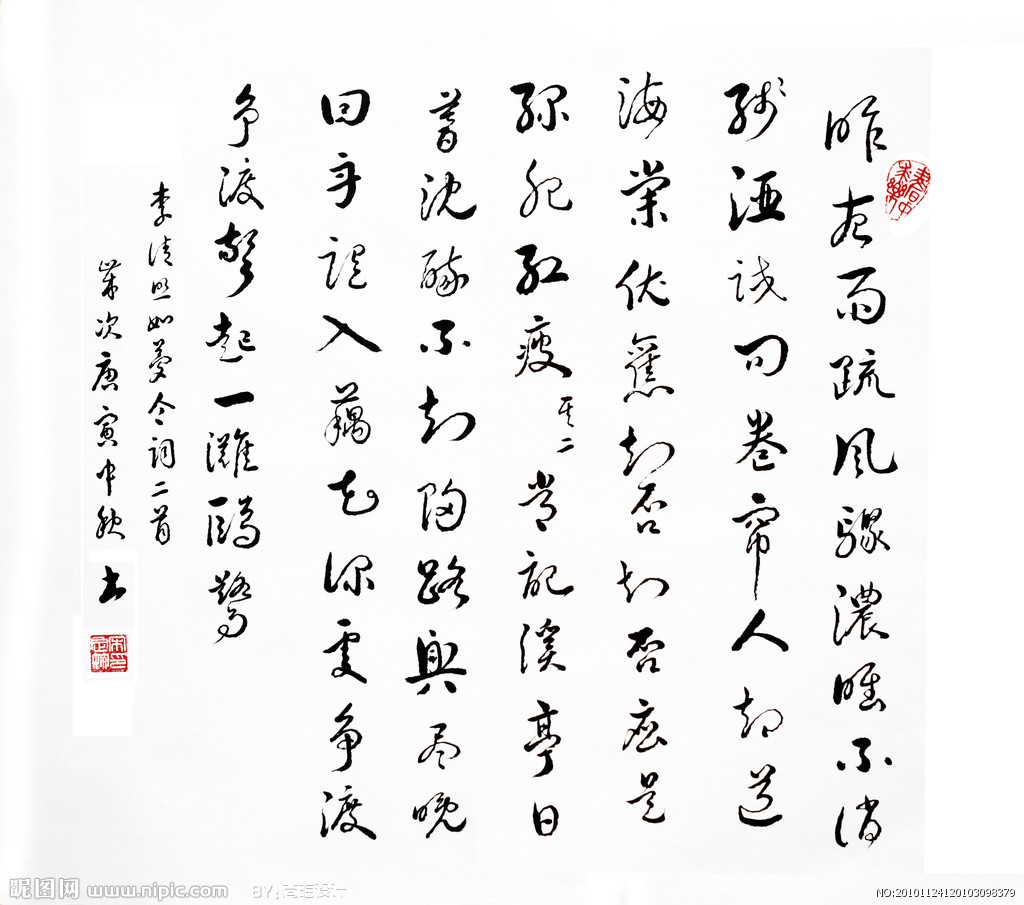 昨夜雨疏风骤濃睡不消
残酒试问卷帘人却道
海棠依舊知否知否应是
绿肥红瘦 其二 常记溪亭日
暮沈醉不知归路興尽晚
回舟误入藕花深处争渡
争渡惊起一灘鷗鷺
李清照如梦令词二首
歲次庚寅中秋 书
昵图网 www.nipic.com
BY:
NO:20101124120103098379